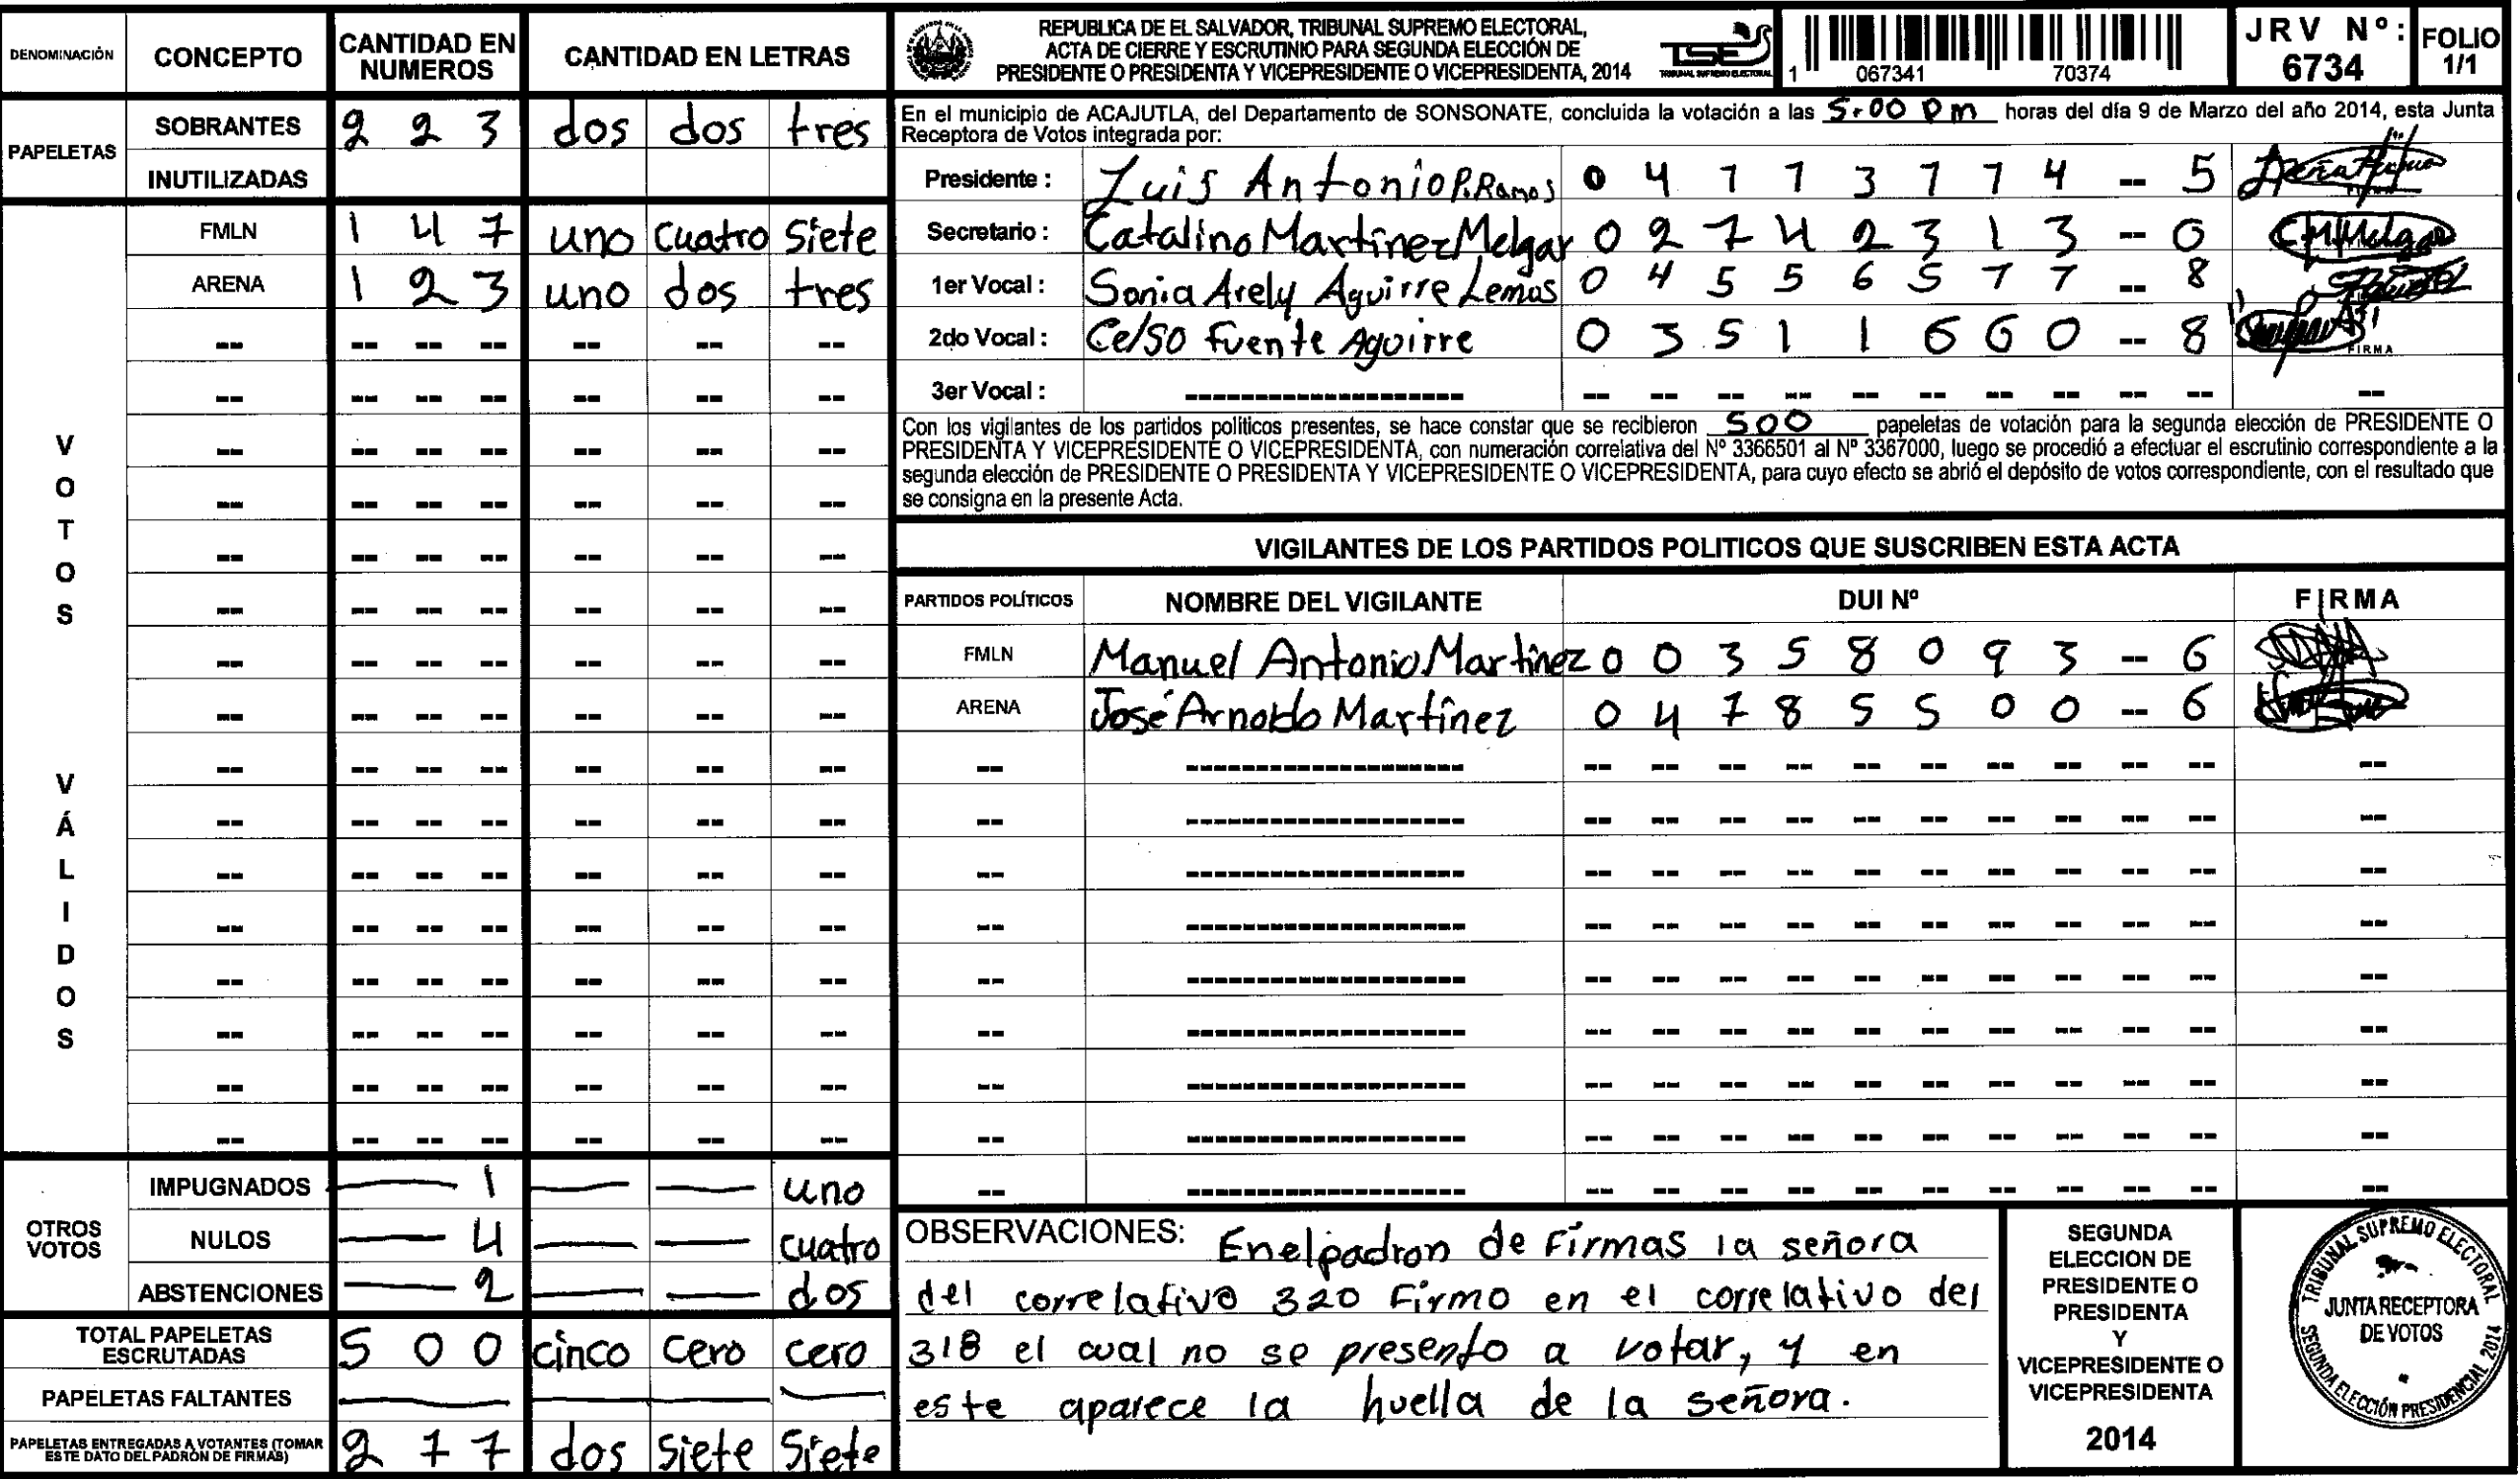 DENOMINACIÓN CONCEPTO CANTIDAD EN NUMEROS CANTIDAD EN LETRAS
PAPELETAS
SOBRANTES 2 2 3 dos dos tres
INUTILIZADAS
VOTOS VÁLIDOS
FMLN 1 4 7 uno cuatro siete
ARENA 1 2 3 uno dos tres
OTROS VOTOS
IMPUGNADOS 1 uno
NULOS 4 cuatro
ABSTENCIONES 2 dos
TOTAL PAPELETAS ESCRUTADAS 5 0 0 cinco cero cero
PAPELETAS FALTANTES
PAPELETAS ENTREGADAS A VOTANTES (TOMAR ESTE DATO DEL PADRÓN DE FIRMAS) 2 7 7 dos siete siete
REPUBLICA DE EL SALVADOR, TRIBUNAL SUPREMO ELECTORAL,
ACTA DE CIERRE Y ESCRUTINIO PARA SEGUNDA ELECCIÓN DE
PRESIDENTE O PRESIDENTA Y VICEPRESIDENTE O VICEPRESIDENTA, 2014
TSE
TRIBUNAL SUPREMO ELECTORAL
1 067341 70374
JRV Nº: 6734
FOLIO 1/1
En el municipio de ACAJUTLA, del Departamento de SONSONATE, concluida la votación a las 5:00 pm horas del día 9 de Marzo del año 2014, esta Junta
Receptora de Votos integrada por:
Presidente : Luis Antonio P. Ramos 0 4 7 7 3 7 7 4 -- 5
Secretario : Catalino Martinez Melgar 0 2 7 4 2 3 1 3 -- 0
1er Vocal : Sonia Arely Aguirre Lemus 0 4 5 5 6 5 7 7 -- 8
2do Vocal : Celso Fuente Aguirre 0 3 5 1 1 6 6 0 -- 8
FIRMA
3er Vocal :
Con los vigilantes de los partidos políticos presentes, se hace constar que se recibieron 500 papeletas de votación para la segunda elección de PRESIDENTE O
PRESIDENTA Y VICEPRESIDENTE O VICEPRESIDENTA, con numeración correlativa del Nº 3366501 al Nº 3367000, luego se procedió a efectuar el escrutinio correspondiente a la
segunda elección de PRESIDENTE O PRESIDENTA Y VICEPRESIDENTE O VICEPRESIDENTA, para cuyo efecto se abrió el depósito de votos correspondiente, con el resultado que
se consigna en la presente Acta.
VIGILANTES DE LOS PARTIDOS POLITICOS QUE SUSCRIBEN ESTA ACTA
PARTIDOS POLÍTICOS NOMBRE DEL VIGILANTE DUI Nº FIRMA
FMLN Manuel Antonio Martinez 0 0 3 5 8 0 9 3 -- 6
ARENA José Arnoldo Martínez 0 4 7 8 5 5 0 0 -- 6
OBSERVACIONES: En el padron de Firmas la señora
del correlativo 320 Firmo en el correlativo del
318 el cual no se presento a votar, y en
este aparece la huella de la señora.
SEGUNDA
ELECCION DE
PRESIDENTE O
PRESIDENTA
Y
VICEPRESIDENTE O
VICEPRESIDENTA
2014
TRIBUNAL SUPREMO ELECTORAL
JUNTA RECEPTORA
DE VOTOS
SEGUNDA ELECCIÓN PRESIDENCIAL 2014